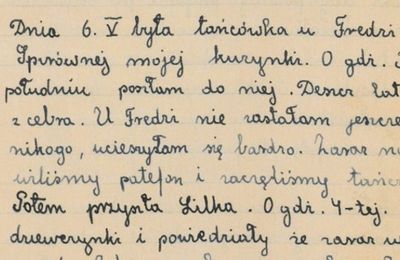 Dnia 6. V była tańcówka u Fredzi
Ipirównej mojej kuzynki. O gdz.
południu poszłam do niej. Deszcz lał
z cebra. U Fredzi nie zastałam jeszcze
nikogo, ucieszyłam się bardzo. Zaraz
wiliśmy patefon i zaczęliśmy tańcz
Potem przyszła Lilka. O gdz. 4-tej.
dziewczynki i powiedziały że zaraz